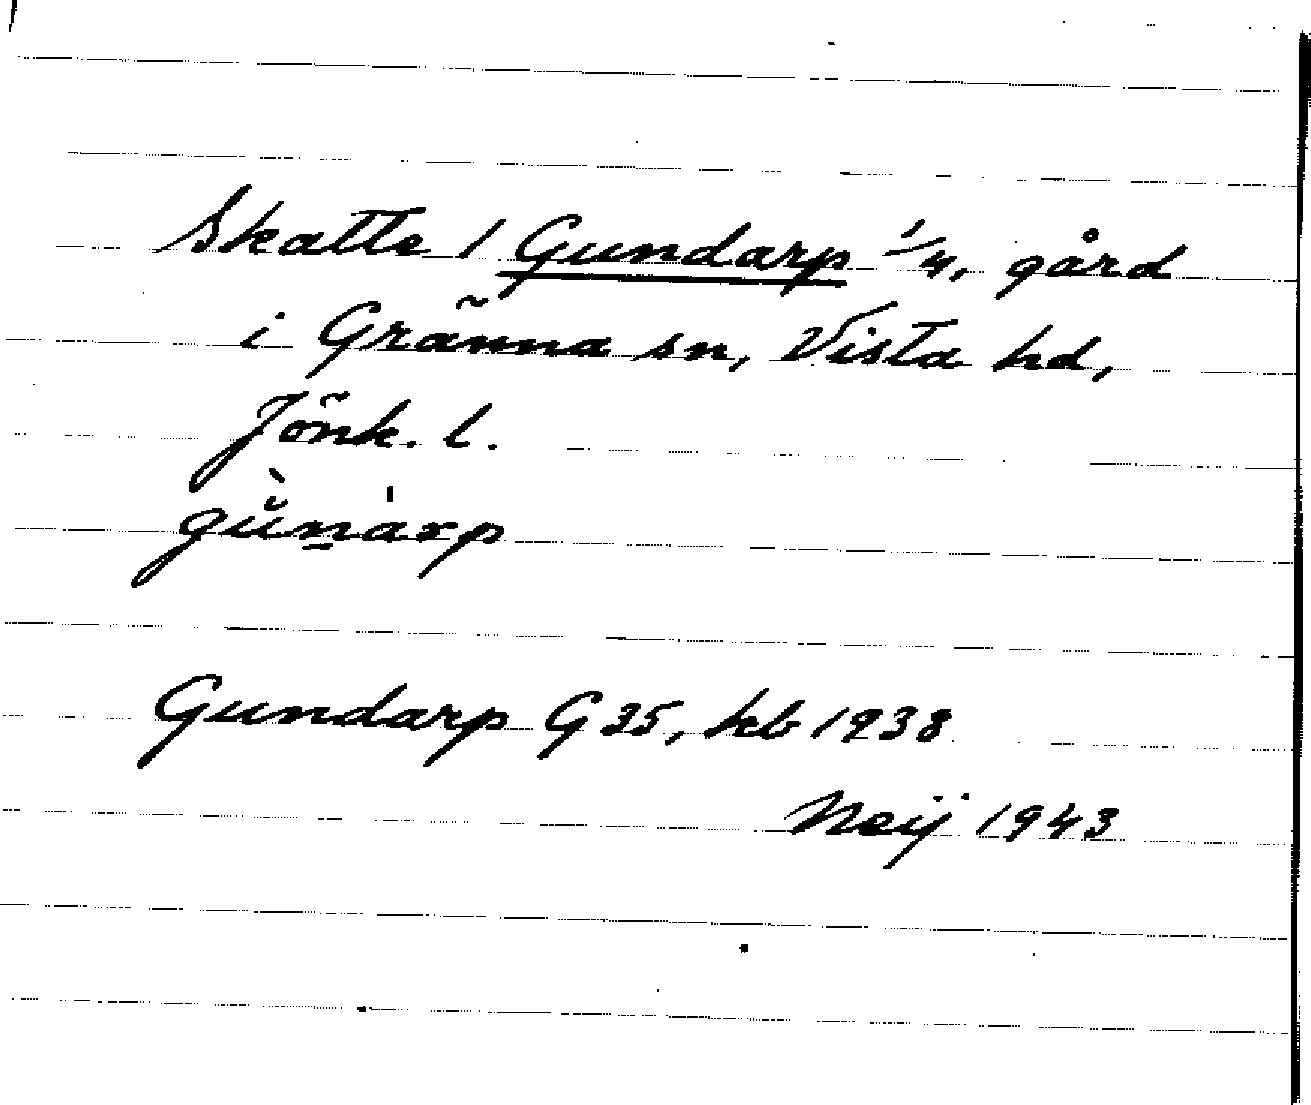 Skatte / Gundarp 1/4, gård
i Gränna sn, Vista hd,
Jönk. l.
gùn̲àrp
Gundarp G 35, kb 1938
Neij 1943